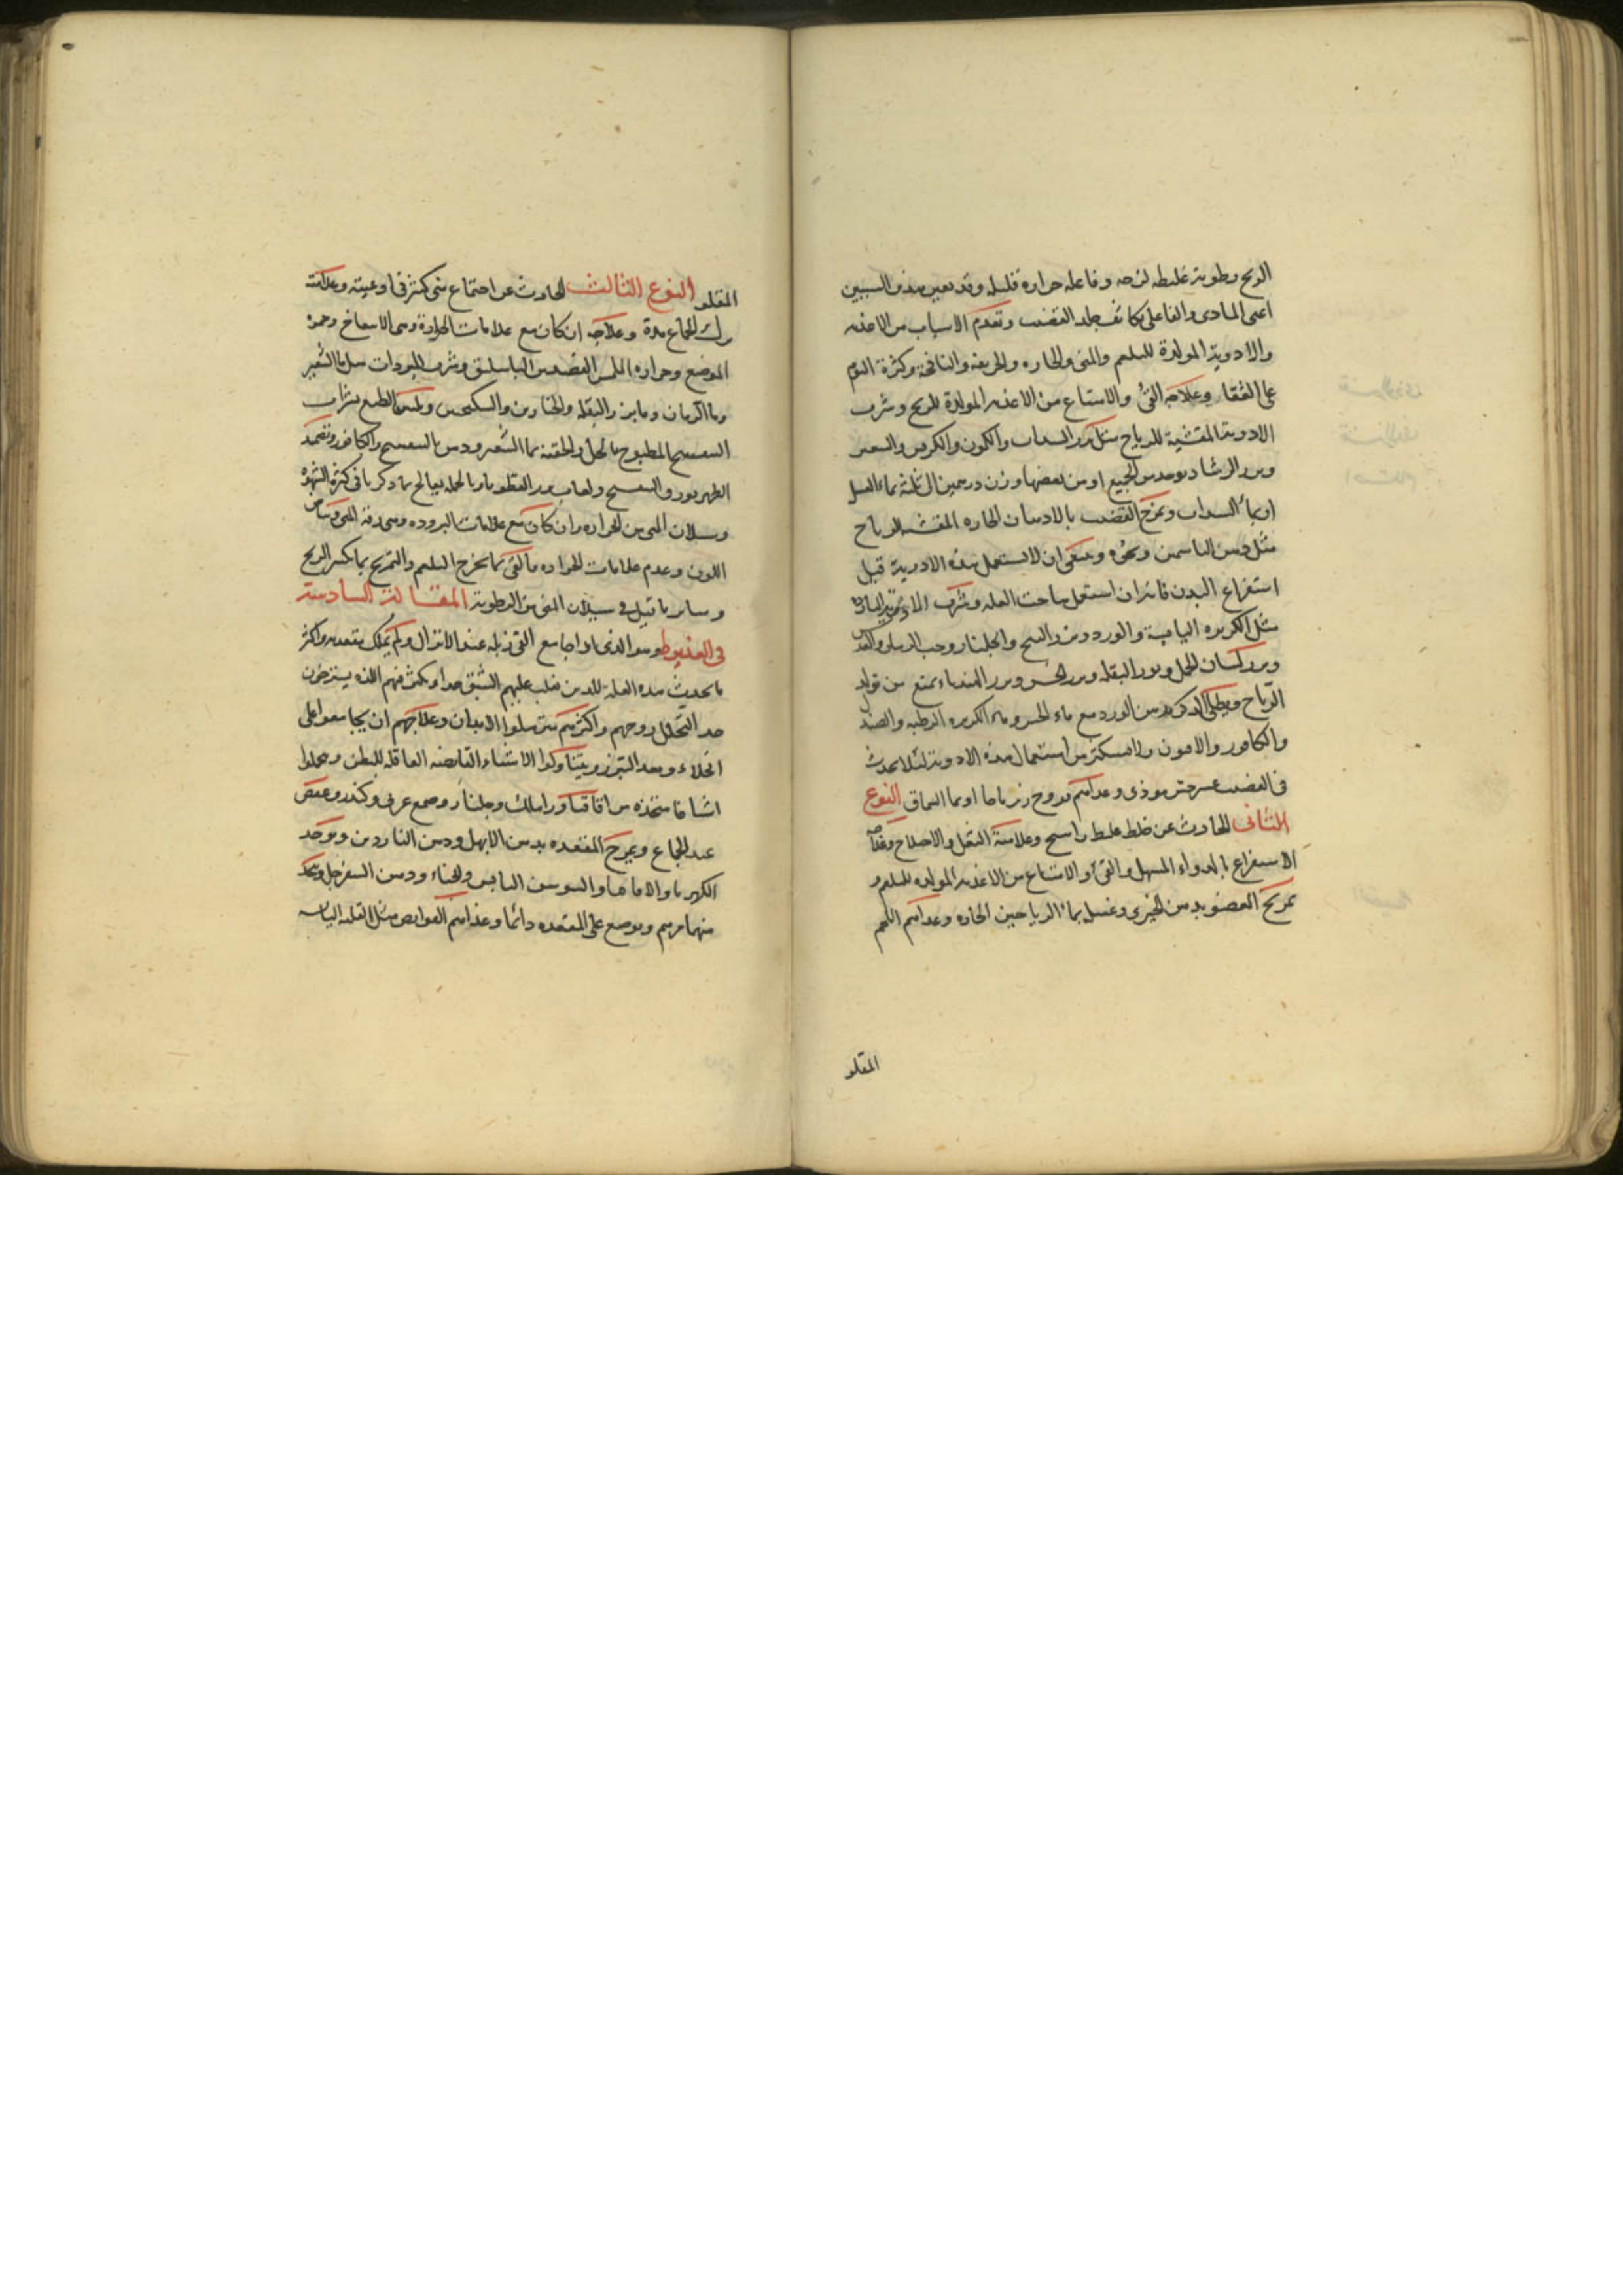 الريح رطوبة غليظه لزجه وفاعله حرارة قليله وقد يعين هذين السببين
اعنى المادى والفاعلى تكاثف جلد القضيب وتقدم الاسباب من الاغذيه
والادوية المولدة للبلغم والمنى والحاره والحريفه والنافخة وكثرة النوم
على القفا وعلاجه القئ والامتناع من الاغذيه المولدة للريح وشرب
الادوية المفشية للرياح مثل بزر السداب والكمون والكرفس والصعتر
وبزر الرشاد يوخد من الجميع او من بعضها وزن درهمين الى ثلثة بماء العسل
او بماء السداب ويمرخ القضيب بالادهان الحاره المفشيه للرياح
مثل دهن الياسمين ونحوه وينبغى ان لا يستعمل هذه الادوية قبل
استفراغ البدن فانه ان استعمل هاجت العله وشرب الادوية الباردة
مثل الكزبره اليابسة والورد وبزر البنج والجلنار وحب الرمان والعدس
وبزر لسان الحمل وبزر البقله وبزر الخس وبزر الهندباء يمنع من تولد
الرياح ويطلى الذكر بدهن الورد مع ماء الخس وماء الكزبره الرطبه والصندل
والكافور والافيون ولا يستكثر من استعمال هذه الادوية لئلا يحدث
فى القضيب موذى وغذاهم فروج زرباجا او بما السماق النوع
الثانى الحادث عن خلط غليظ راسخ وعلامته الثقل والاختلاج وعلاجه
الاستفراغ بالدواء المسهل والقئ والامتناع من الاغذيه المولده للبلغم و
تمريخ العضو بدهن الخيرى وغسل بماء الرياحين الحاره وغذاهم اللحم
المقلو
المقلو النوع الثالث الحادث عن اجتماع منى كثير فى اوعيته وعلامته
ترك الجماع مدة وعلاجه ان كان مع علامات الحرارة وهى الانتفاخ وحمرة
الموضع وحراره الملمس الفصد من الباسليق وشرب المبردات مثل ماء الشعير
وماء الرمان وماء بزر البقله والخيارين والسكنجبين وتليين الطبع بشراب
البنفسج المطبوخ بالخل والحقنة بماء الشعير ودهن البنفسج والكافور وتضميد
الظهر بورد والبنفسج ولعاب بزر القطونا وبالجمله يعالج بما ذكرنا فى كثرة الشهوة
وسيلان المنى من الحراره وان كان مع علامات البروده وهى رقة المنى وبياض
اللون وعدم علامات الحراره فالقئ بما يخرج البلغم والتمريخ بما يكسر الريح
وساير ما قيل فى سيلان المنى من الرطوبة المقالة السادسة
فى العذيوط وهو الذى اذا جامع القى زبله عند الانزال ولم يملك مقعدته واكثر
ما يحدث هذه العله للذين يغلب عليهم الشبق جدا ويكثر فيهم اللذه يسترخون
حد التحلل روحهم واكثرهم مترهلوا الابدان وعلاجهم ان يجامعوا على
الخلاء وبعد التبرز ويتناولوا الاشياء القابضه العاقله للبطن ويتحملوا
اشيافا متخذه من اقاقيا ورامك وجلنار وصمغ عربى وكندر وعفص
عند الجماع ويمرخ المقعده بدهن الابهل ودهن الناردين ويوخد
الكهربا والاقاقيا والسوسن اليابس والحناء ودهن السفرجل ويتخذ
منهما مرهم ويوضع على المقعده دائما وغذاهم القوابض مثل القلايا اليابسه